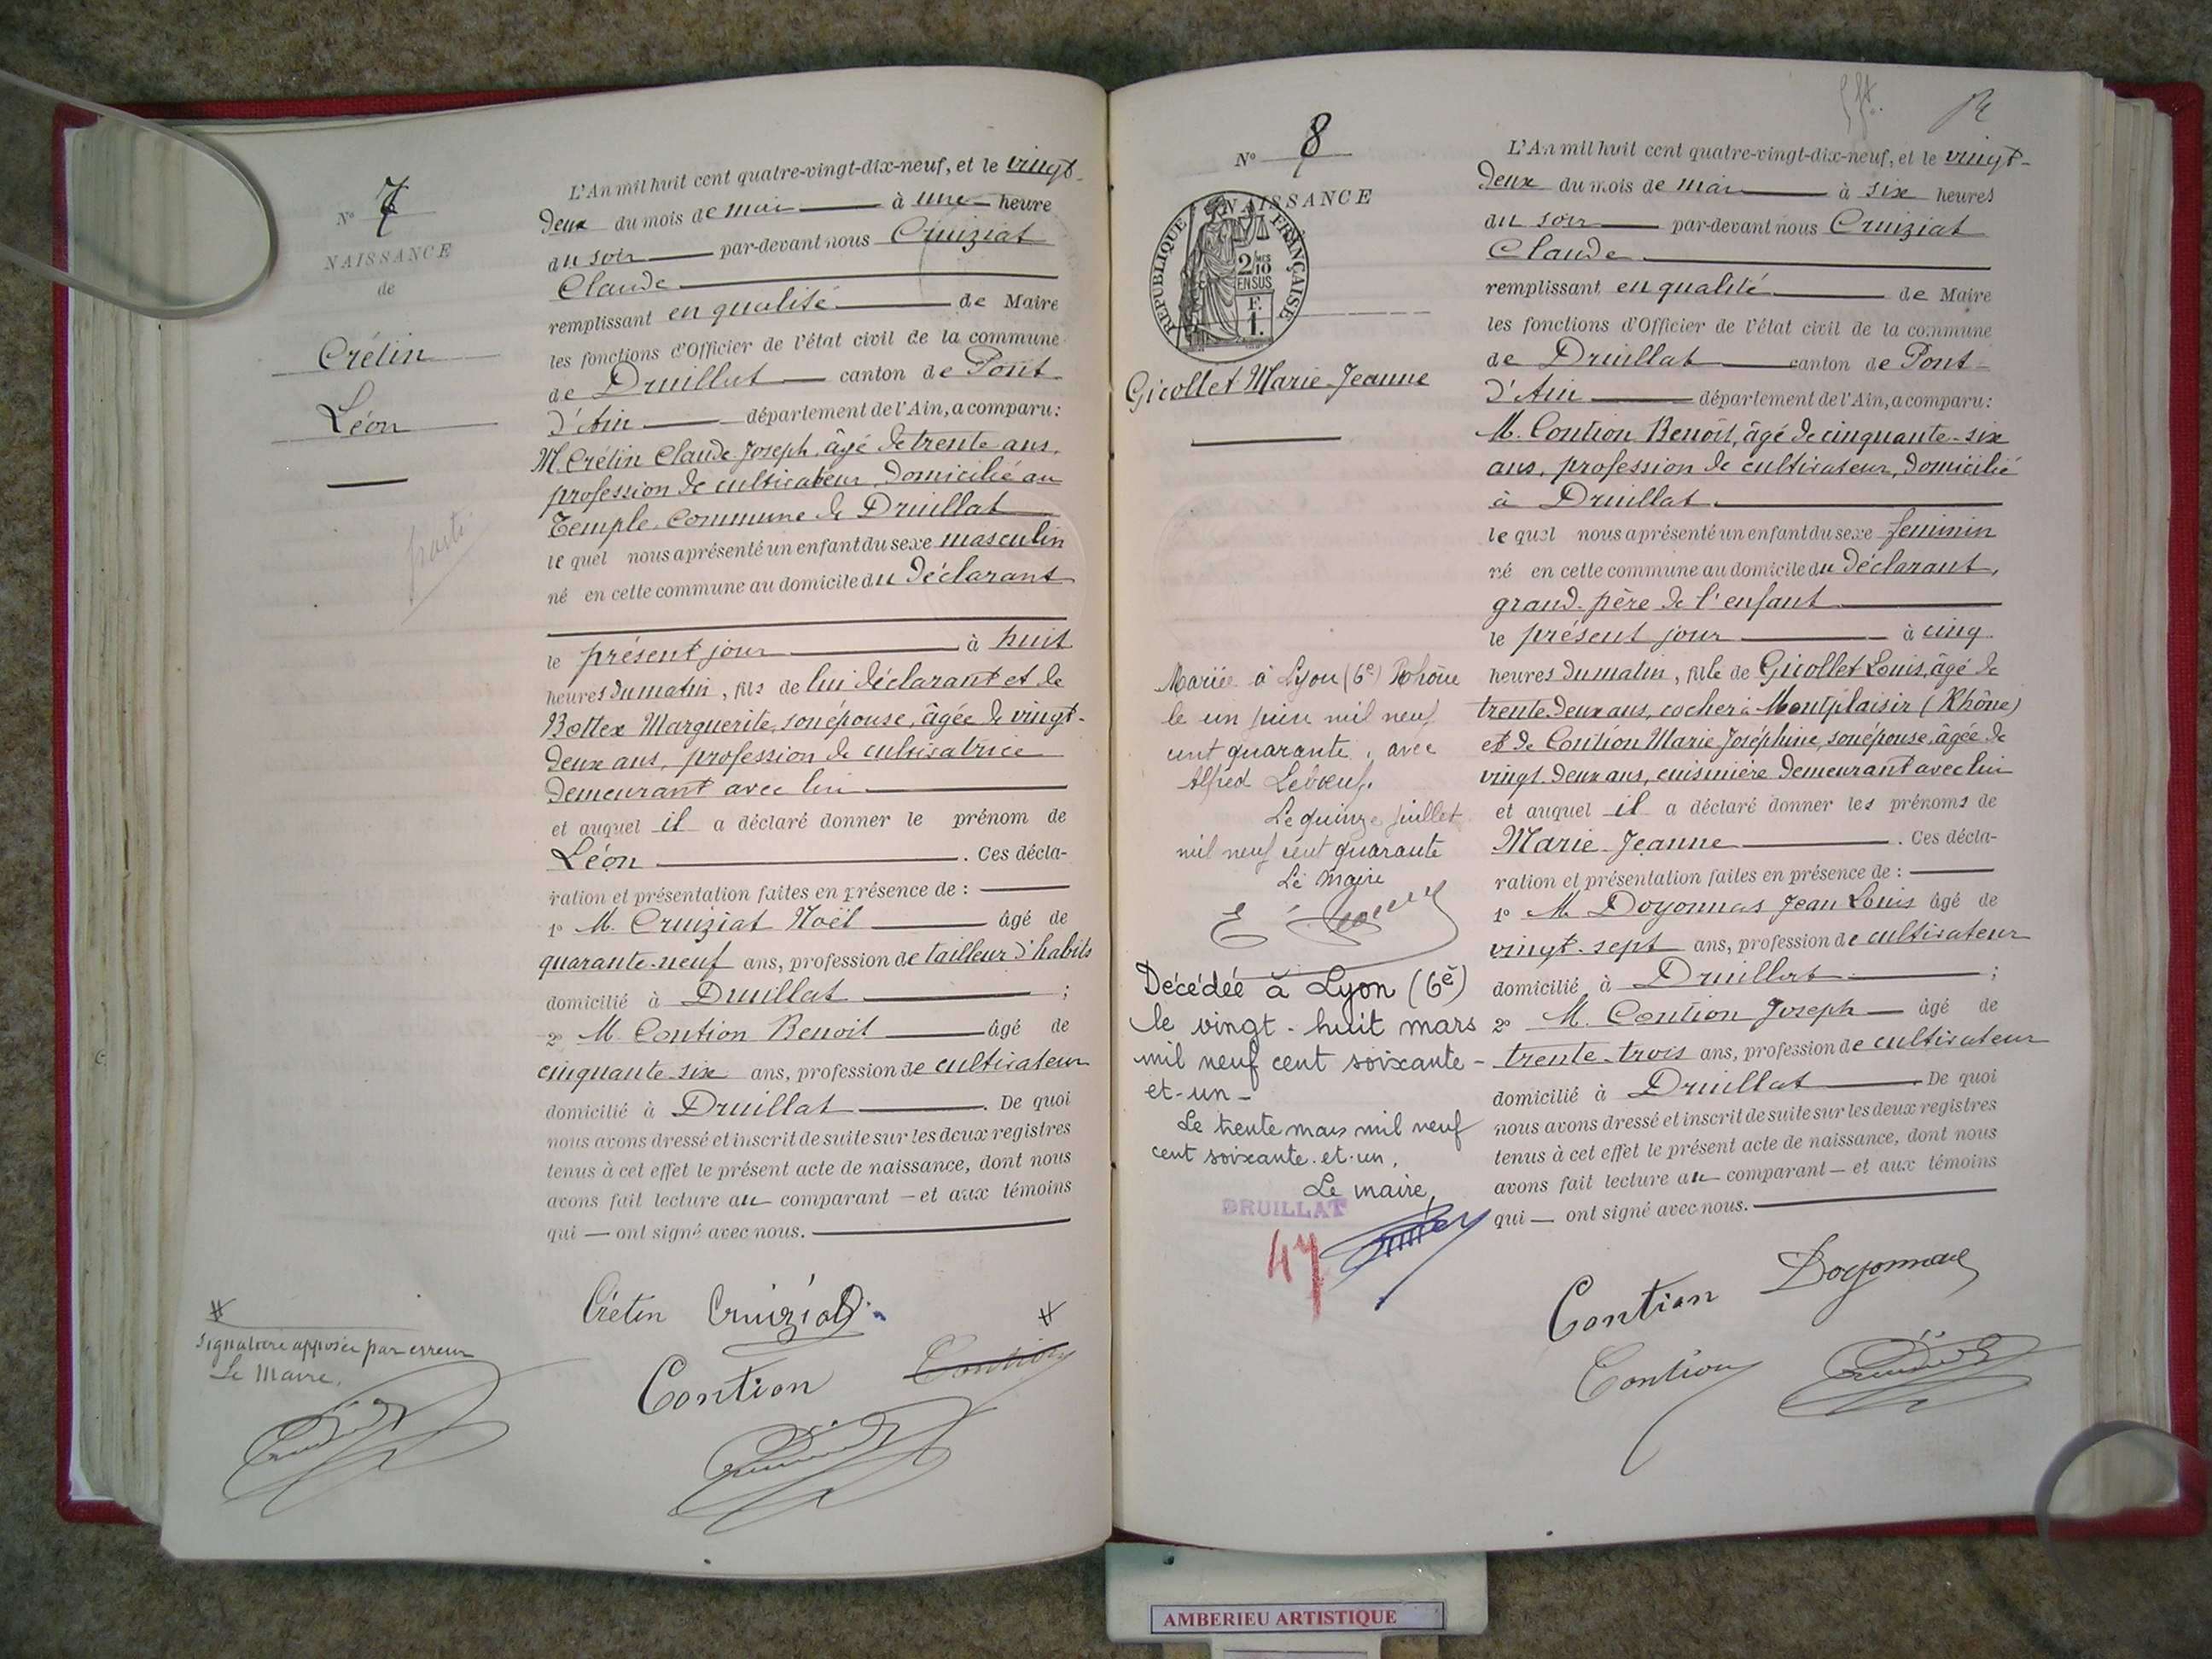 N° 7
NAISSANCE
de
Crétin
Léon
parti
L'An mil huit cent quatre-vingt-dix-neuf, et le vingt-
deux du mois de mai à une heure
du soir par-devant nous Cruiziat
Claude
remplissant en qualité de Maire
les fonctions d'Officier de l'état civil de la commune
de Druillat canton de Pont
d'Ain département de l'Ain, a comparu :
M. Crétin Claude Joseph, âgé de trente ans,
profession de cultivateur, domicilié au
Temple, commune de Druillat
le quel nous a présenté un enfant du sexe masculin
né en cette commune au domicile du déclarant
le présent jour à huit
heures du matin, fils de lui déclarant et de
Bottex Marguerite, son épouse, âgée de vingt-
deux ans, profession de cultivatrice
demeurant avec lui
et auquel il a déclaré donner le prénom de
Léon. Ces décla-
ration et présentation faites en présence de :
1° M. Cruiziat Noël âgé de
quarante-neuf ans, profession de tailleur d'habits
domicilié à Druillat ;
2° M. Contion Benoit âgé de
cinquante-six ans, profession de cultivateur
domicilié à Druillat. De quoi
nous avons dressé et inscrit de suite sur les deux registres
tenus à cet effet le présent acte de naissance, dont nous
avons fait lecture au comparant — et aux témoins
qui — ont signé avec nous.
Crétin Cruiziat
Contion Contion
signature apposée par erreur
Le Maire,
N° 8
NAISSANCE
RÉPUBLIQUE FRANÇAISE
2/10
EN SUS
F.
1.
Gicollet Marie-Jeanne
Mariée à Lyon (6e) Rhône
le un juin mil neuf
cent quarante, avec
Alfred Lebœuf.
Le quinze juillet
mil neuf cent quarante
Le maire
Décédée à Lyon (6è)
le vingt-huit mars
mil neuf cent soixante-
et-un-
Le trente mars mil neuf
cent soixante-et-un,
Le maire,
DRUILLAT
47
L'An mil huit cent quatre-vingt-dix-neuf, et le vingt-
deux du mois de mai à six heures
du soir par-devant nous Cruiziat
Claude
remplissant en qualité de Maire
les fonctions d'Officier de l'état civil de la commune
de Druillat canton de Pont-
d'Ain département de l'Ain, a comparu :
M. Contion Benoit, âgé de cinquante-six
ans, profession de cultivateur, domicilié
à Druillat
le quel nous a présenté un enfant du sexe feminin
né en cette commune au domicile du déclarant,
grand-père de l'enfant
le présent jour à cinq
heures du matin, fille de Gicollet Louis, âgé de
trente-deux ans, cocher à Montplaisir (Rhône)
et de Contion Marie Joséphine, son épouse, âgée de
vingt-deux ans, cuisinière demeurant avec lui
et auquel il a déclaré donner les prénoms de
Marie-Jeanne. Ces décla-
ration et présentation faites en présence de :
1° M. Doyonnas Jean Louis âgé de
vingt-sept ans, profession de cultivateur
domicilié à Druillat ;
2° M. Contion Joseph âgé de
trente-trois ans, profession de cultivateur
domicilié à Druillat. De quoi
nous avons dressé et inscrit de suite sur les deux registres
tenus à cet effet le présent acte de naissance, dont nous
avons fait lecture au comparant — et aux témoins
qui — ont signé avec nous.
Contion Doyonnax
Contion
AMBERIEU ARTISTIQUE